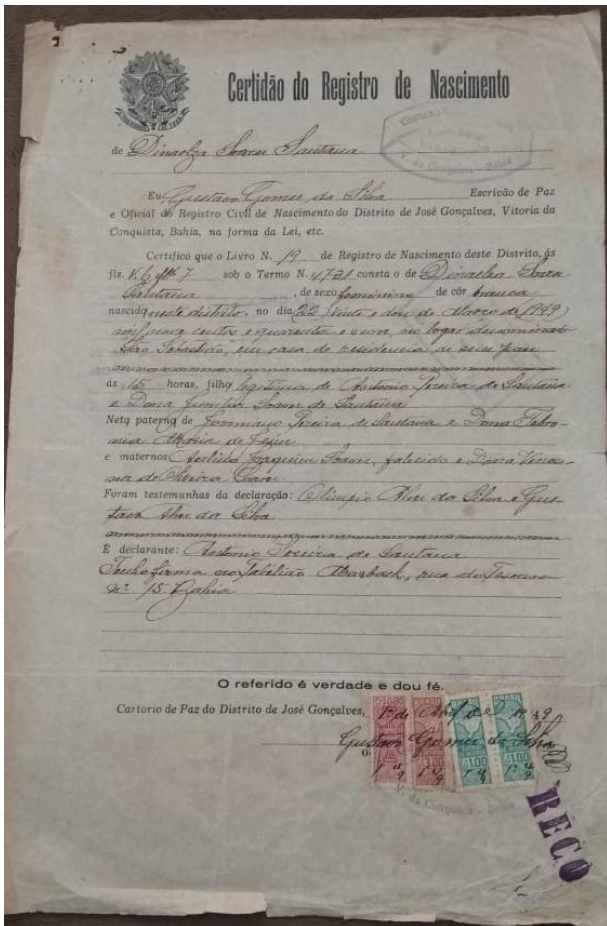 Certidão do Registro de Nascimento
de Dinaelza Soares Santana
Eu, Gustavo Gomes da Silva Escrivão de Paz
e Oficial do Registro Civil de Nascimento do Distrito de José Gonçalves, Vitoria da
Conquista, Bahia, na forma da Lei, etc.
Certifico que o Livro N. 19 de Registro de Nascimento deste Distrito, ás
flz. 7 sob o Termo N. 4721 consta o de Dinaelza Soares
Santana, de sexo feminino de côr branca
nascida neste distrito, no dia (22) vinte e dois de Março de (1949)
mil nove centos e quarenta e nove, no logar denominado
São Sebastião, em casa de residencia de seus pais
ás 15 horas, filha legitima de Antonio Pereira de Santana
e Dona Soares de Santana
Neta paterna de Pereira de Santana e Dona
Maria de
e maternos Joaquim Soares, falecido e Dona
de Oliveira
Foram testemunhas da declaração: Olimpio Alves da Silva e Gus-
tavo da Silva
É declarante: Antonio Pereira de Santana
Tenho firma no Tabelião Marback, rua do Tesouro
nº 15. Bahia
O referido é verdade e dou fé.
Cartorio de Paz do Distrito de José Gonçalves, 1º de Abril de 1949
Gustavo Gomes da Silva
V. da Conquista - Bahia
RECO